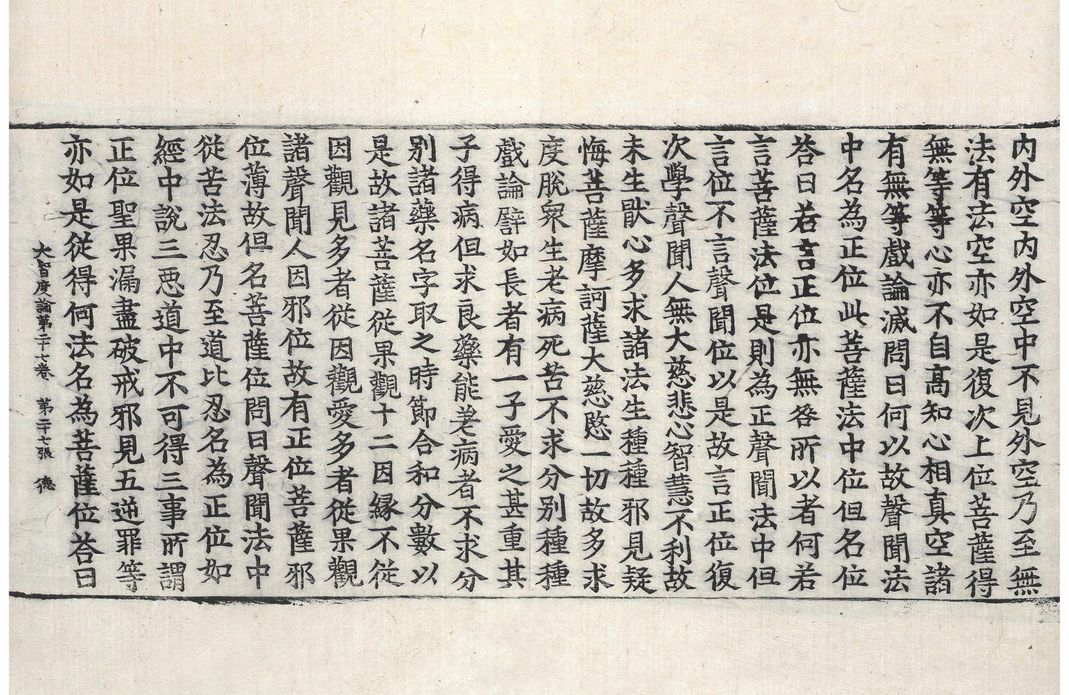 内外空内外空中不見外空乃至無
法有法空亦如是復次上位菩薩得
無等等心亦不自高知心相真空諸
有無等戲論滅問曰何以故聲聞法
中名為正位此菩薩法中位但名位
荅曰若言正位亦無咎所以者何若
言菩薩法位是則為正聲聞法中但
言位不言聲聞位以是故言正位復
次學聲聞人無大慈悲心智慧不利故
未生猒心多求諸法生種種邪見疑
悔菩薩摩訶薩大慈愍一切故多求
度脫衆生老病死苦不求分別種種
戲論譬如長者有一子愛之甚重其
子得病但求良藥能差病者不求分
別諸藥名字取之時節合和分數以
是故諸菩薩從果觀十二因緣不從
因觀見多者從因觀愛多者從果觀
諸聲聞人因邪位故有正位菩薩邪
位薄故但名菩薩位問曰聲聞法中
從苦法忍乃至道比忍名為正位如
經中說三惡道中不可得三事所謂
正位聖果漏盡破戒邪見五逆罪等
亦如是從得何法名為菩薩位荅曰
大智度論第二十七卷 第二十七張 德